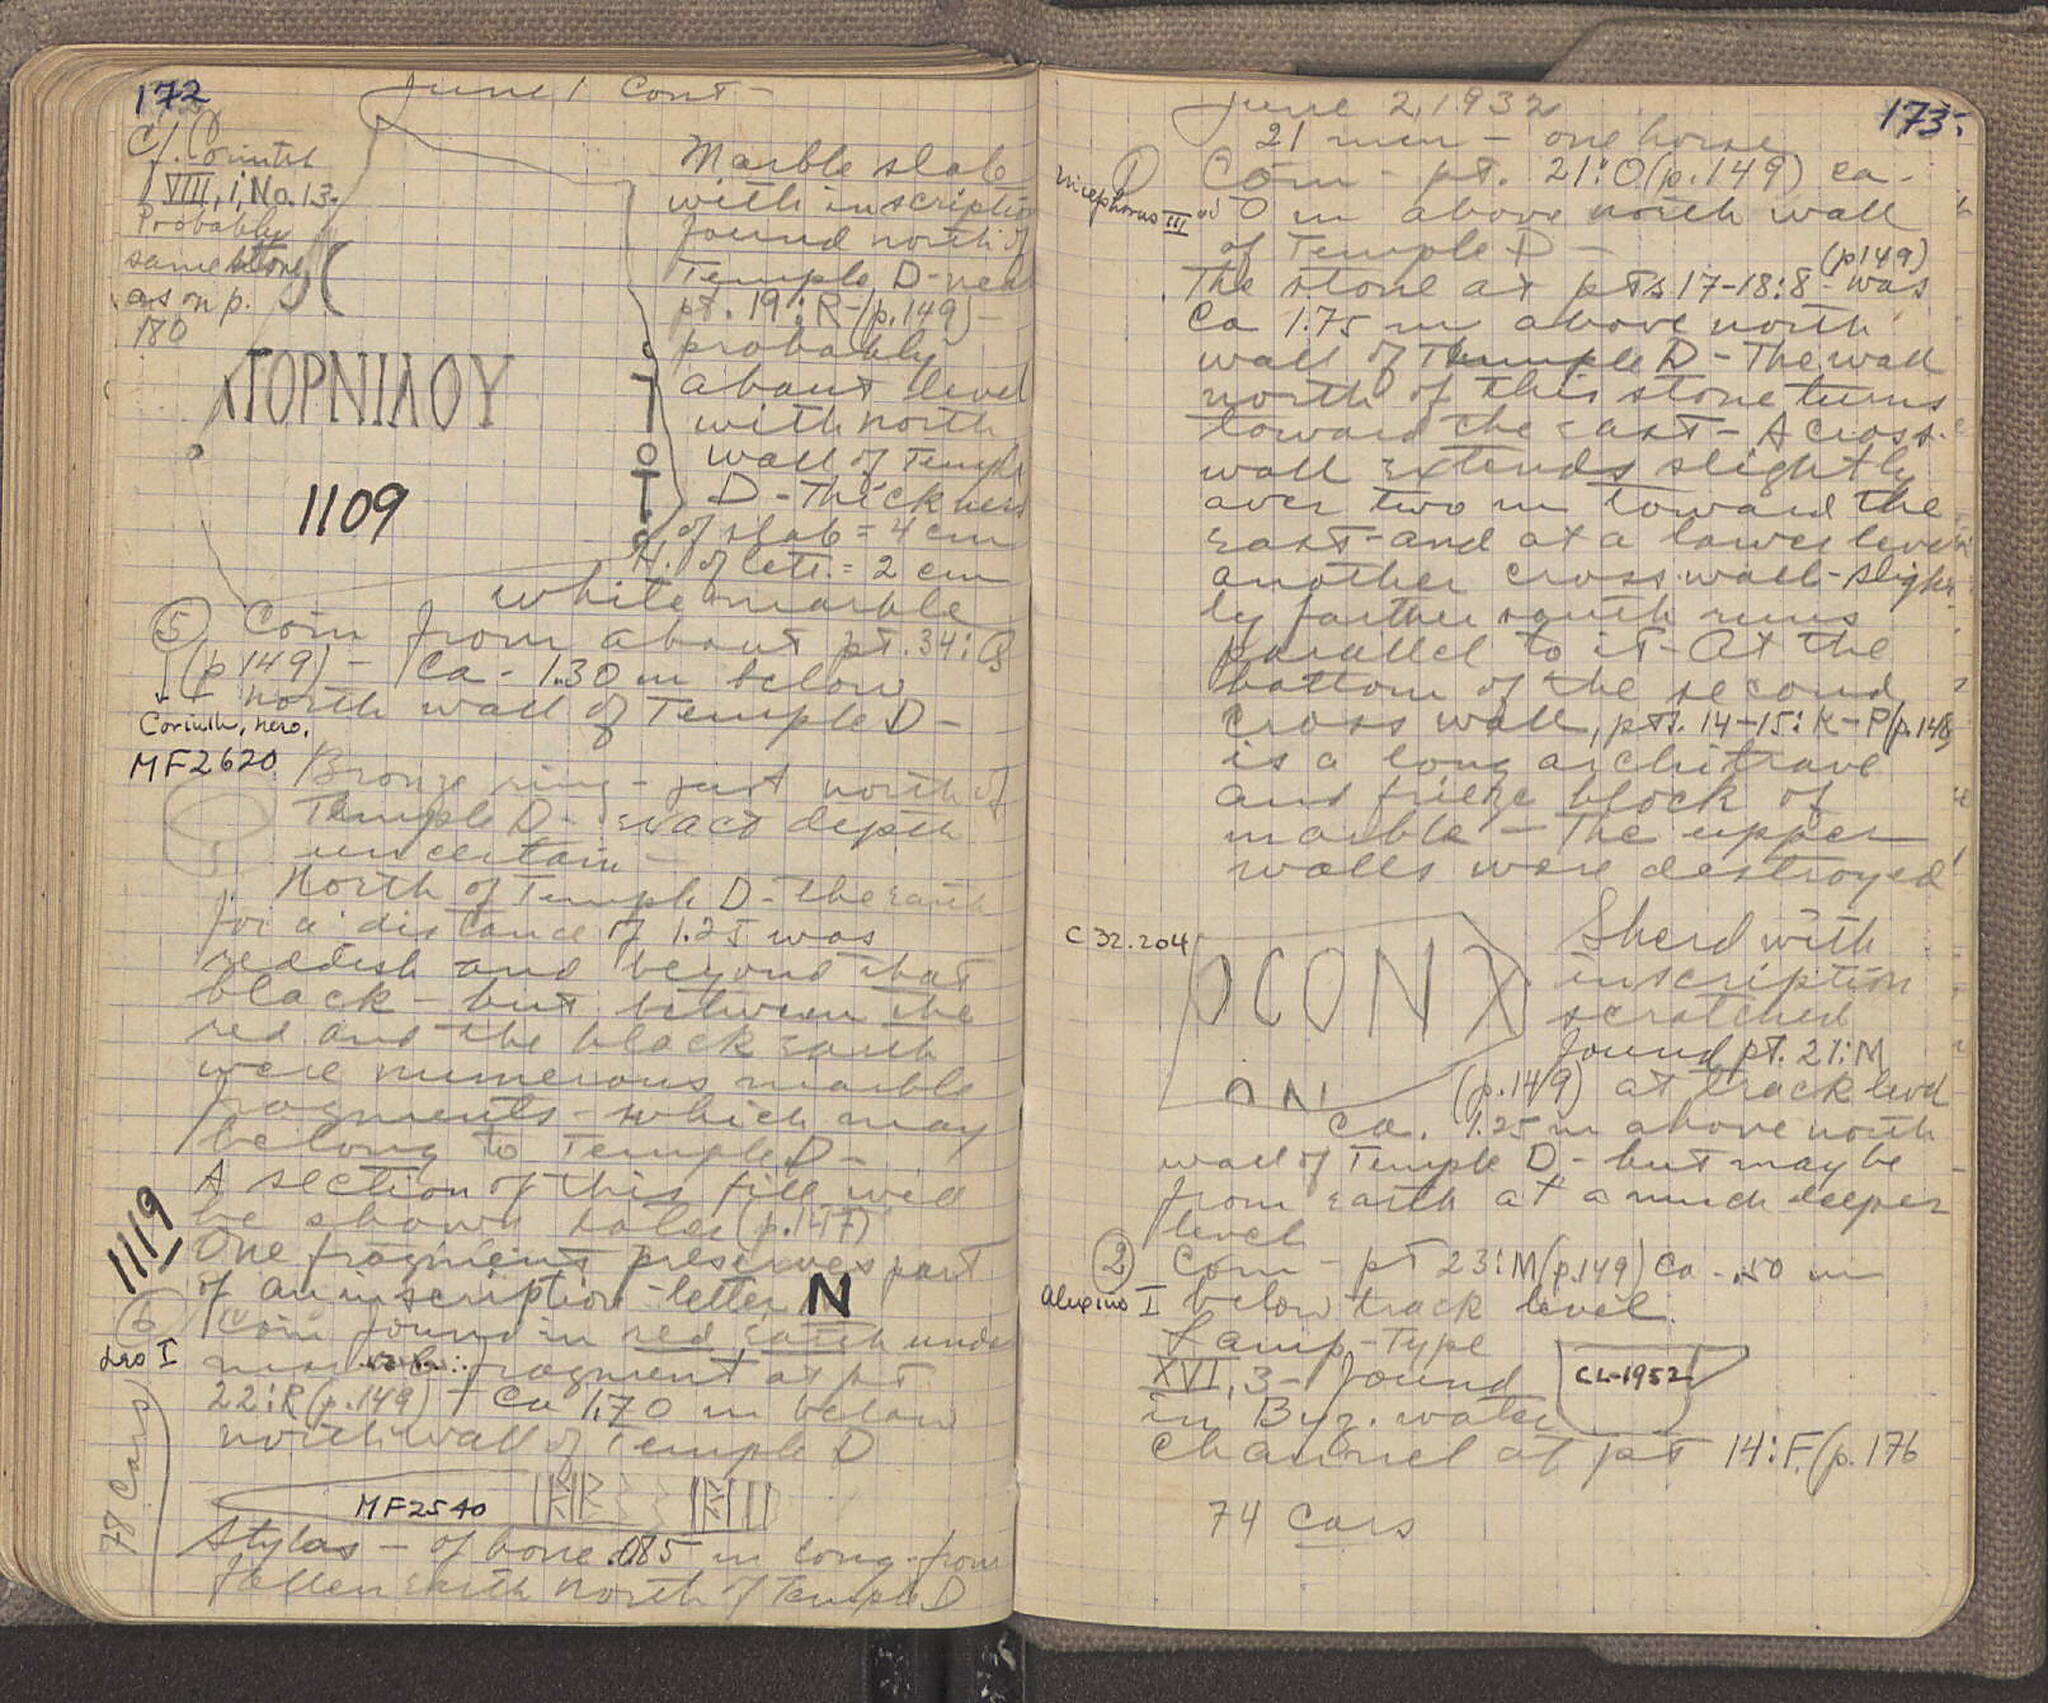 172
June 1 Cont-
Cf. Corinth
VIII, i, No. 13.
Probably
same stone
as on p.
180
Marble slab
with inscription
found north of
Temple D - near
pt. 19:R-(p.149)-
probably
about level
with north
wall of Temple
D - Thickness
of slab = 4 cm
H. of lett. = 2 cm
white marble
ΤΟΡΝΙΛΟΥ
1109
⑤ Coin from about pt. 34:
(p 149) - Ca - 1.30 m below
north wall of Temple D -
Corinth, Nero.
MF2620
Bronze ring - just north of
Temple D - exact depth
uncertain -
North of Temple D - the earth
for a distance of 1.25 was
reddish and beyond that
black - but between the
red and the black earth
were numerous marble
fragments - which may
belong to Temple D -
A section of this fill will
be shown later (p.147)
1119
One fragment preserves part
of an inscription - letter N
⑥ Coin found in red earth under
Leo I
fragment at pt
22:R (p.149) - Ca 1.70 m below
north wall of Temple D
78 Cars
MF2540
Stylas - of bone .085 m long - from
fallen earth north of Temple D
173.
June 2, 1932
21 men - one horse
① Coin - pt. 21:O (p.149) ca -
Nicephorus III
m above north wall
of Temple D -
(p149)
The stone at pts 17-18:8 - was
Ca 1.75 m above north
wall of Temple D - The wall
north of this stone turns
toward the east - A cross-
wall extends slightly
over two m toward the
east - and at a lower level
another cross wall - slight-
ly farther south runs
parallel to it - At the
bottom of the second
cross wall, pts. 14-15:K-P (p.148)
is a long architrave
and frieze block of
marble - The upper
walls were destroyed
C 32.204
CON
Sherd with
inscription
scratched
found pt. 21:M
(p.149) at track level
Ca. 1.25 m above north
wall of Temple D - but may be
from earth at a much deeper
level
② Coin - pt 23:M (p.149) Ca - .50 m
Alexius I
below track level.
Lamp - Type
XVI, 3 - Found
CL-1952
in Byz. water
channel at pt 14:F. (p. 176
74 Cars